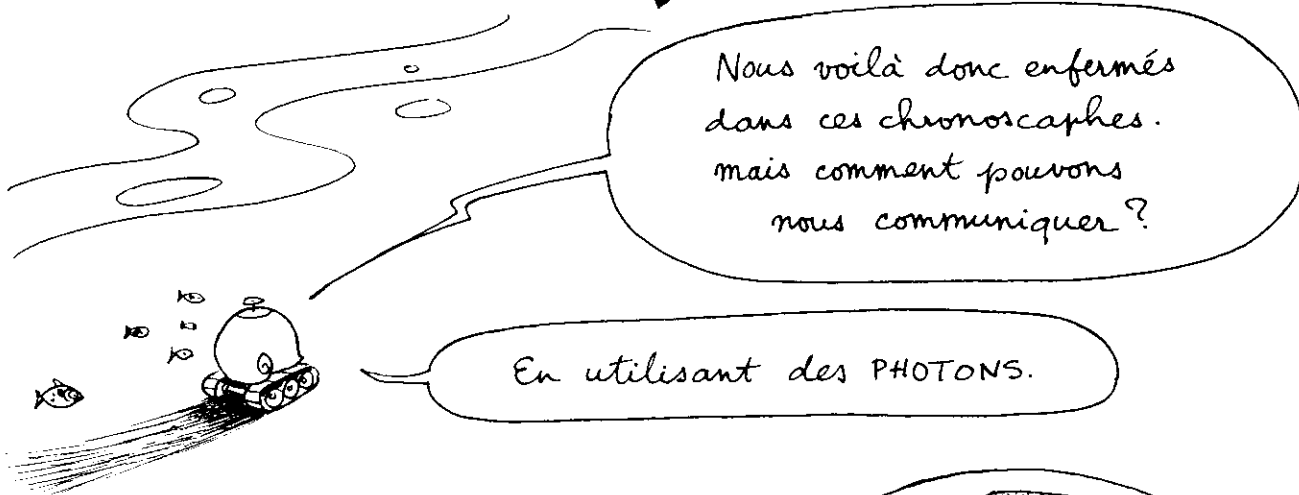 Nous voilà donc enfermés
dans ces chronoscaphes.
mais comment pouvons
nous communiquer ?
En utilisant des PHOTONS.